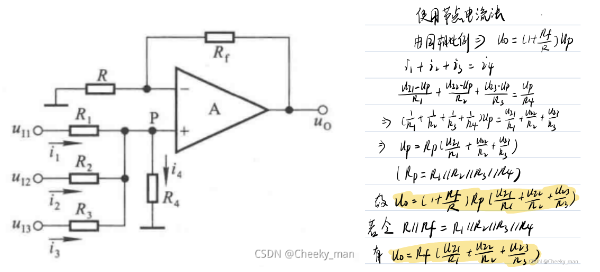 R
R_f
R_1
u_{I1}
i_1
R_2
u_{I2}
i_2
R_3
u_{I3}
i_3
P
i_4
R_4
−
+
A
u_O
使用节点电流法
由同相比例 ⇒ U_o = (1+\frac{R_f}{R})U_p
i_1 + i_2 + i_3 = i_4
\frac{U_{21}-U_p}{R_1} + \frac{U_{22}-U_p}{R_2} + \frac{U_{23}-U_p}{R_3} = \frac{U_p}{R_4}
⇒ (\frac{1}{R_1}+\frac{1}{R_2}+\frac{1}{R_3}+\frac{1}{R_4})U_p = \frac{U_{21}}{R_1}+\frac{U_{22}}{R_2}+\frac{U_{23}}{R_3}
⇒ U_p = R_p(\frac{U_{21}}{R_1}+\frac{U_{22}}{R_2}+\frac{U_{23}}{R_3})
(R_p = R_1//R_2//R_3//R_4)
故 U_o = (1+\frac{R_f}{R})R_p(\frac{U_{21}}{R_1}+\frac{U_{22}}{R_2}+\frac{U_{23}}{R_3})
若令 R//R_f = R_1//R_2//R_3//R_4
有 U_o = R_f(\frac{U_{21}}{R_1}+\frac{U_{22}}{R_2}+\frac{U_{23}}{R_3})
CSDN @Cheeky_man